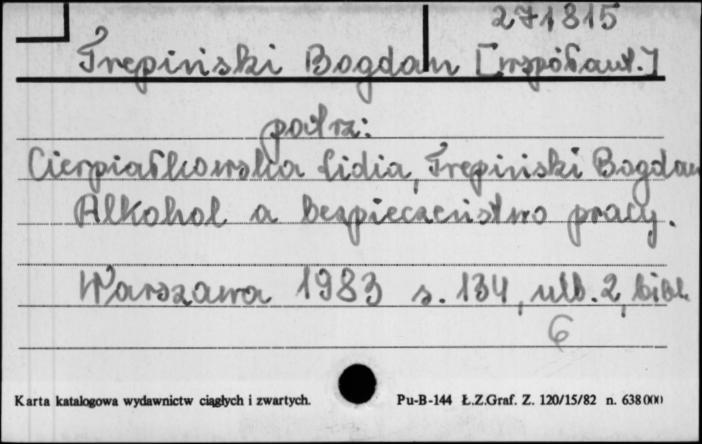 271815
Trepiński Bogdan [współaut.]
patrz:
Cierpiałkowska Lidia, Trepiński Bogdan
Alkohol a bezpieczeństwo pracy.
Warszawa 1983 s. 134, nlb. 2, bibl.
6
Karta katalogowa wydawnictw ciągłych i zwartych. Pu-B-144 Ł.Z.Graf. Z. 120/15/82 n. 638000